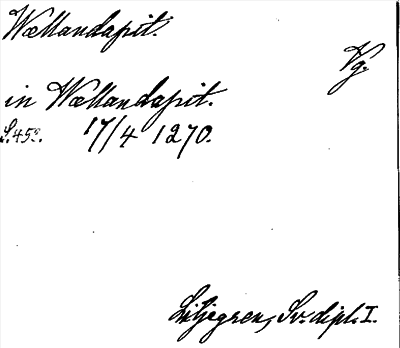 Wællandapit.
Vg.
in Wællandapit.
S.45º. 17/4 1270.
Liljegren, Sv. dipl. I.